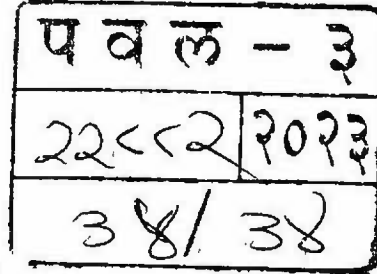 प व ल - ३
२२८८२ २०२३
३४/ ३४